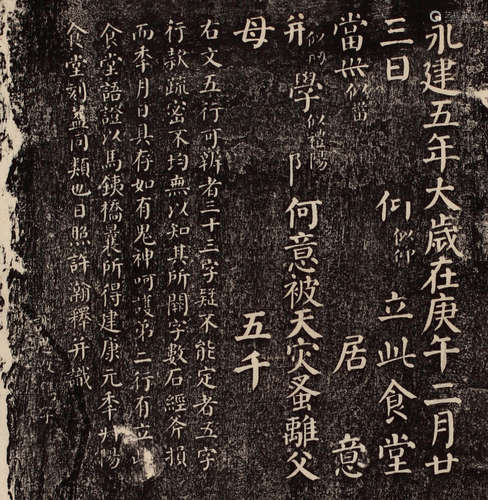 永建五年大歲在庚午二月廿
三日 仰似仰 立此食堂
當世似當 居 意
并似所 學似禮陽 阝何意被天灾蚤離父
母 五千
右文五行可辨者三十三字疑不能定者五字
行款疏密不均無以知其所闕字數石經斧損
而年月日具存如有鬼神呵護第二行有立此
食堂語證以馬銕橋曩所得建康元年文陽
食堂刻蓋同類也日照許瀚釋并識